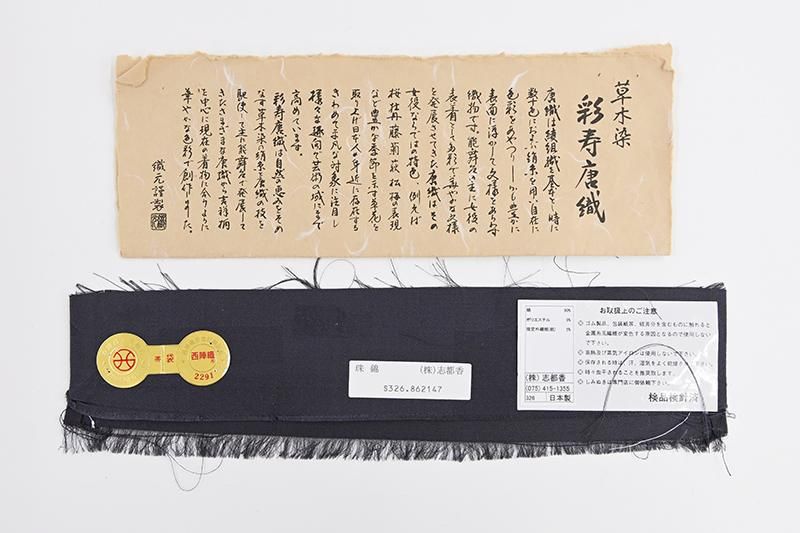 草木染
彩寿唐織
唐織は綾組織を基本とし時に
数十色におよぶ絹糸を用い自在に
色彩をあやつりしかも豊かに
表面に浮かして文様をあらわす
織物です。能舞台の主に女役の
表着として多彩で華やかな文様
を発展させてきた唐織はその
女役ならではの特色、例えば
桜 牡丹 藤 菊 萩 松 梅の表現
など豊かな季節を示す草花を
取り上げ日本人の身近に存在する
きわめて平凡な対象に注目し
様々な趣向で芸術の域にまで
高めています。
彩寿唐織は自然の恵みをそめ
なす草木染の絹糸を唐織の技を
駆使して主に能舞台で発展して
きたさまざまな唐織から吉祥柄
を中心に現在の着物に合うように
華やかな色彩で創作しました。
織元謹製
帯 袋
西陣織
2291
珠錦 (株)志都香
S326.862147
絹
ポリエステル
指定外繊維(紙)
(株)志都香
(075) 415-1355
326 日本製
お取扱上のご注意
◎ゴム製品、包装紙等、硫黄分を含むものに触れると
金属糸風繊維が変色する原因となるので使用しない
で下さい。
◎高熱及び蒸気アイロンは使用しないで下さい。
◎時々虫干されることを推奨致します。
◎しみぬきは専門店に御依頼下さい。
検品検針済